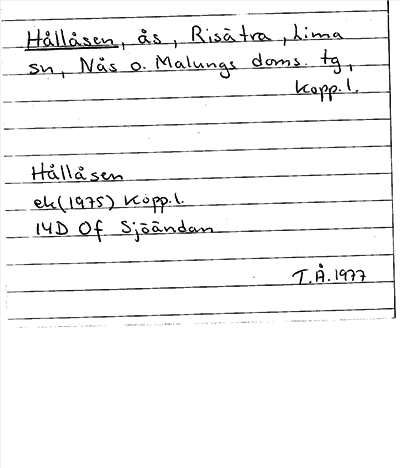 Hållåsen, ås, Risätra, Lima
sn, Nås o. Malungs doms. tg,
Kopp.l.
Hållåsen
ek(1975) Kopp.l.
14D Of Sjöändan
T.Å.1977